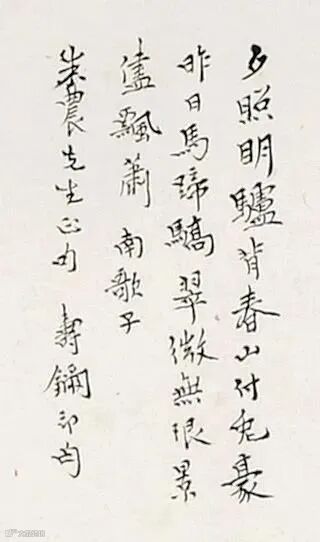 夕照明驢背春山付兔豪
昨日馬蹄驕翠微無限景
儘飄蕭 南歌子
農先生正句 壽鑈印匄